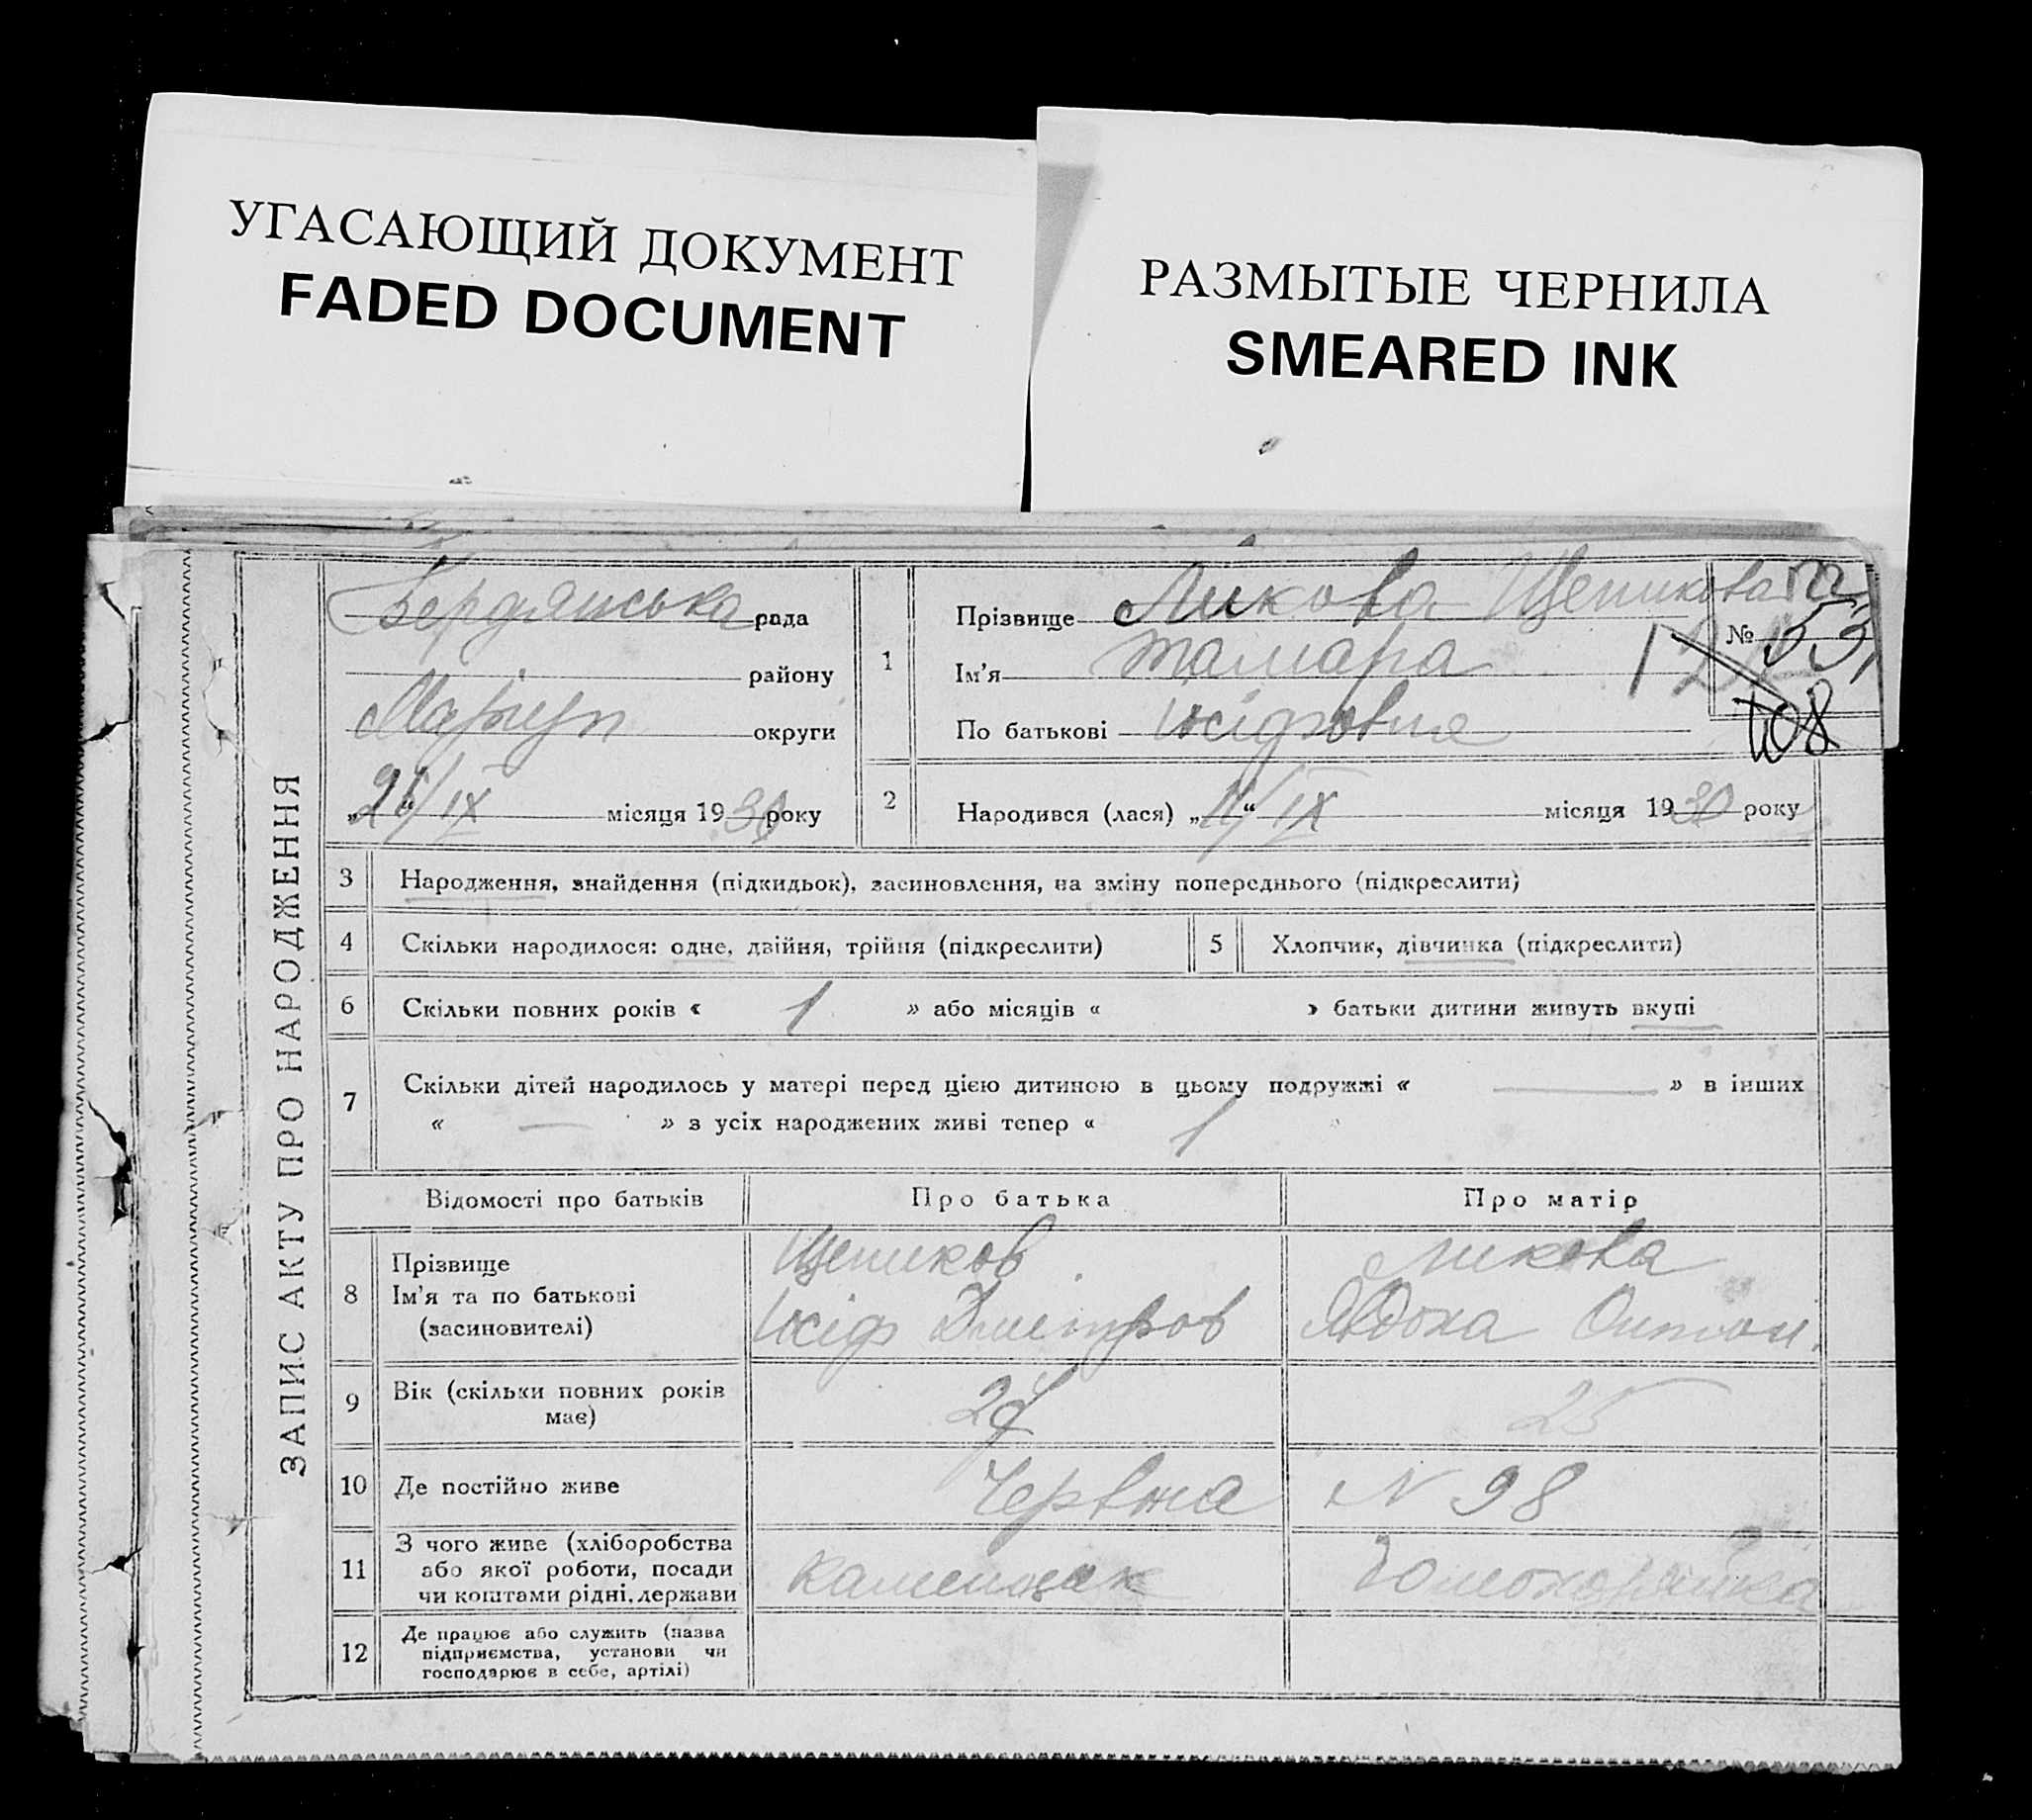 УГАСАЮЩИЙ ДОКУМЕНТ
FADED DOCUMENT
РАЗМЫТЫЕ ЧЕРНИЛА
SMEARED INK
ЗАПИС АКТУ ПРО НАРОДЖЕННЯ
Бердянська рада
району
Маріуп округи
місяця 1930 року
1 Прізвище Ликова Щепикова
Ім'я Тамара
По батькові Йосіфовна
№ 108
2 Народився (лася) „ “ IX місяця 1930 року
3 Народження, знайдення (підкидьок), засиновлення, на зміну попереднього (підкреслити)
4 Скільки народилося: одне, двійня, трійня (підкреслити)
5 Хлопчик, дівчинка (підкреслити)
6 Скільки повних років « 1 » або місяців « » батьки дитини живуть вкупі
7 Скільки дітей народилось у матері перед цією дитиною в цьому подружжі « — » в інших
« — » з усіх народжених живі тепер « 1
Відомості про батьків Про батька Про матір
8 Прізвище Щепиков Ликова
Ім'я та по батькові
(засиновителі) Дмітров Явдоха Антон.
9 Вік (скільки повних років
має) 25
10 Де постійно живе Червона N 98
11 З чого живе (хліборобства
або якої роботи, посади
чи коштами рідні, держави
каменщик домохозяйка
12 Де працює або служить (назва
підприємства, установи чи
господарює в себе, артілі)